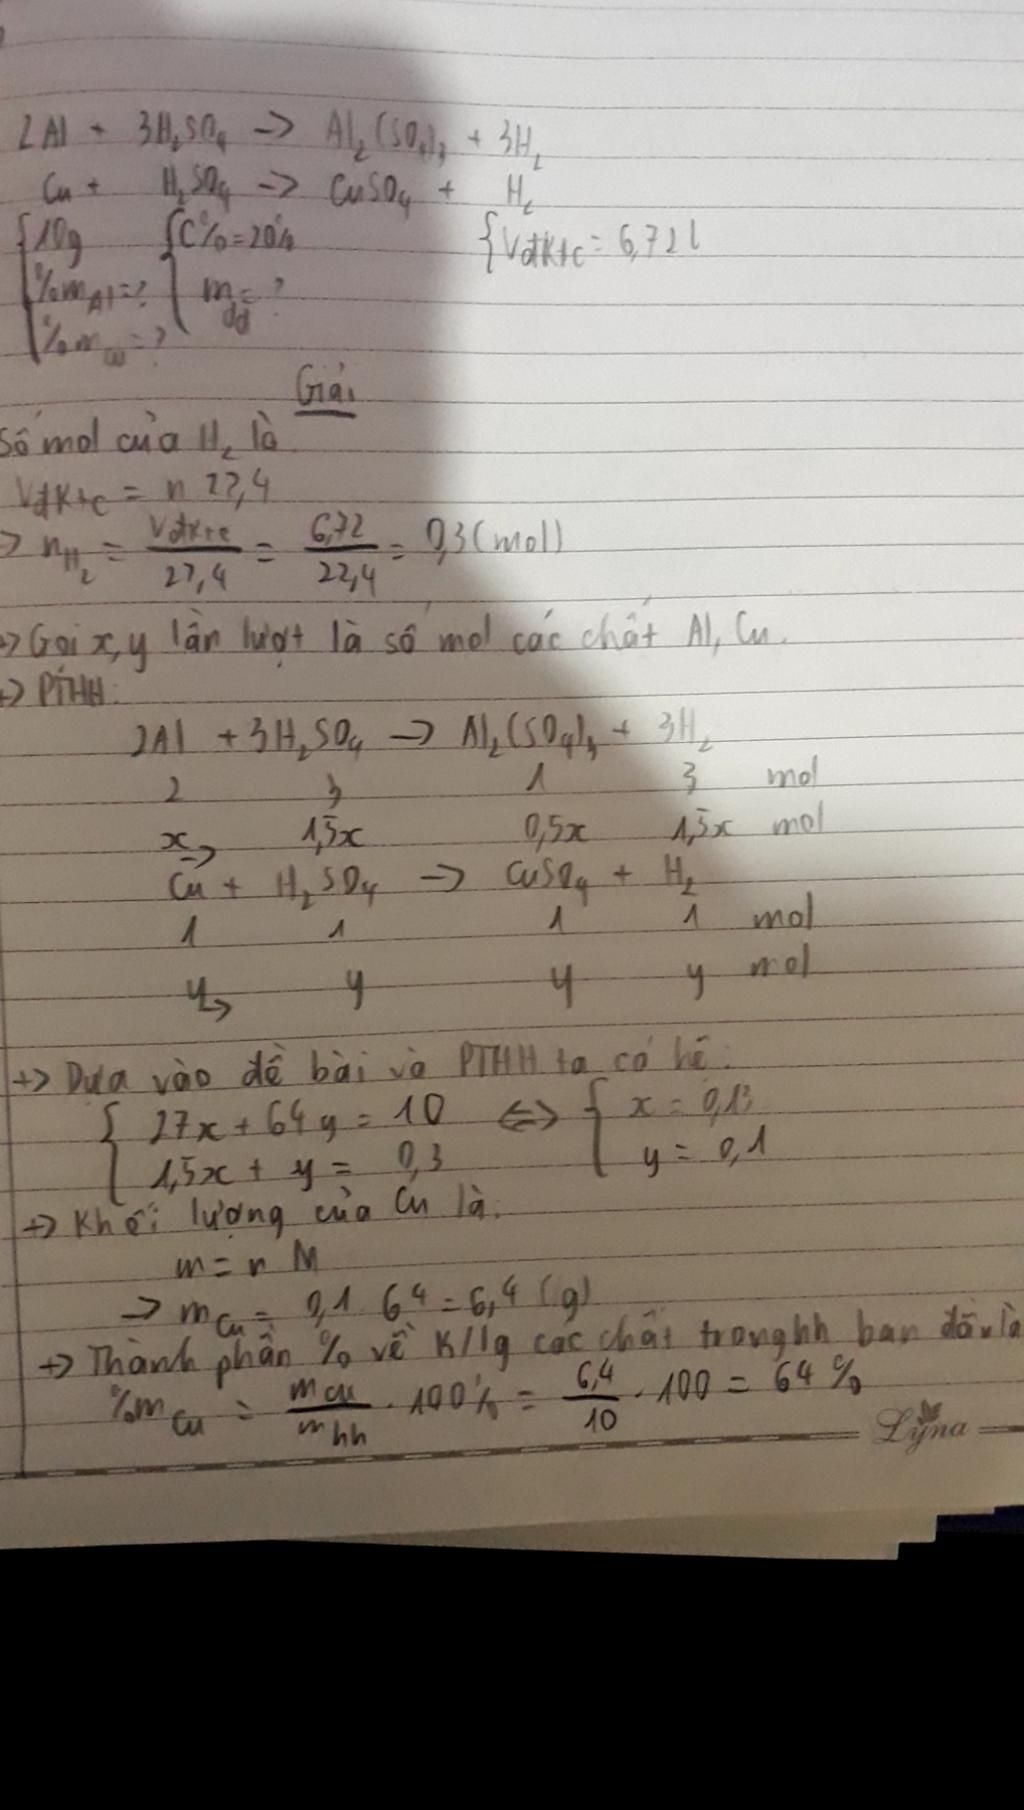 2Al + 3H₂SO₄ -> Al₂(SO₄)₃ + 3H₂
Cu + H₂SO₄ -> CuSO₄ + H₂
{10g {C%=20% {Vđktc = 6,72l
%mAl=? mdd=?
%mCu=?
Giải
Số mol của H₂ là
Vđktc = n 22,4
-> nH₂ = Vđktc/22,4 = 6,72/22,4 = 0,3(mol)
+> Gọi x,y lần lượt là số mol các chất Al, Cu.
+> PTHH:
2Al + 3H₂SO₄ -> Al₂(SO₄)₃ + 3H₂
2 3 1 3 mol
x-> 1,5x 0,5x 1,5x mol
Cu + H₂SO₄ -> CuSO₄ + H₂
1 1 1 1 mol
y-> y y y mol
+> Dựa vào đề bài và PTHH ta có hệ:
{27x+64y=10 <=> {x=0,13
1,5x+y=0,3 y=0,1
+> Khối lượng của Cu là:
m=n M
-> mCu = 0,1 64=6,4(g)
+> Thành phần % về K/lg các chất trong hh ban đầu là
%mCu = mCu/mhh . 100% = 6,4/10 . 100 = 64%
Lyna